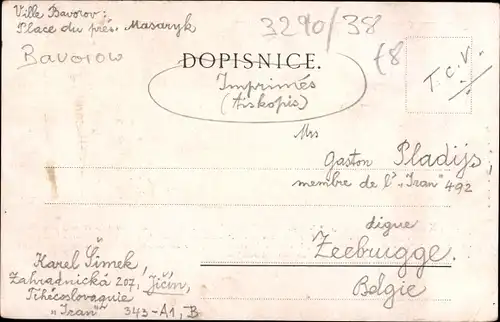 Ville Bavorov:
Place du prés. Masaryk
Bavorow
3290/38
£8
DOPISNICE.
Imprimés
(Tiskopis)
T.c.v.
Mrs
Gaston Pladijs,
membre de l'„Iran" 492
digue
Zeebrugge.
Belgie
Karel Šimek,
Zahradnická 207, Jičín,
Tchécoslovaquie
„Iran" 343-A1, B